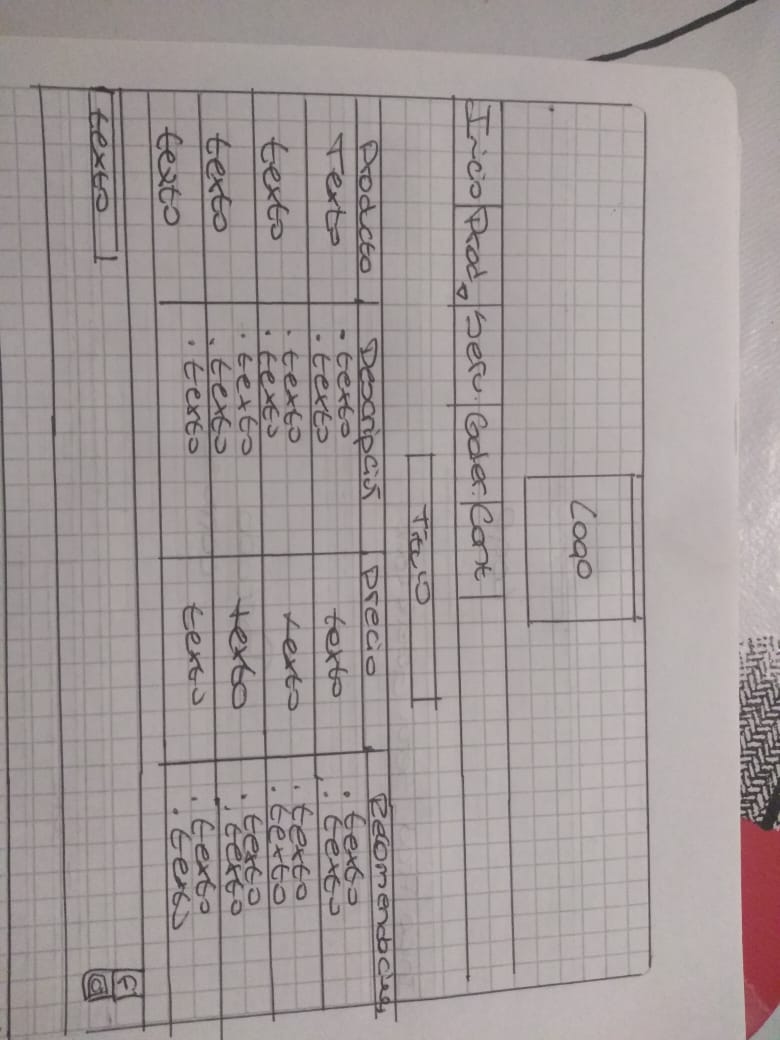 Logo
Inicio Prod. Serv. Galer. Cont
Título
Producto Descripción Precio Recomendaciones
Texto . texto texto . texto
. texto . texto
texto . texto texto . texto
. texto . texto
texto . texto texto . texto
. texto . texto
texto . texto texto . texto
. texto
texto f